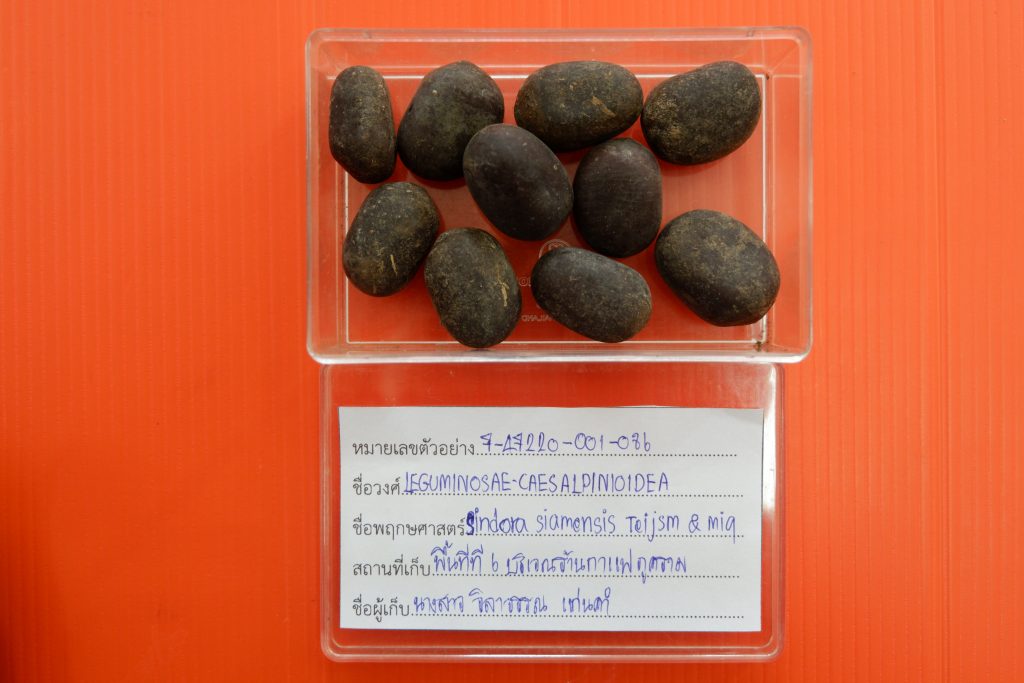 หมายเลขตัวอย่าง 7-47220-001-086
ชื่อวงศ์ LEGUMINOSAE-CAESALPINIOIDEA
ชื่อพฤกษศาสตร์ Sindora siamensis Teijsm & miq
สถานที่เก็บ พื้นที่ที่ 6 บริเวณร้านกาแฟ
ชื่อผู้เก็บ นางสาว